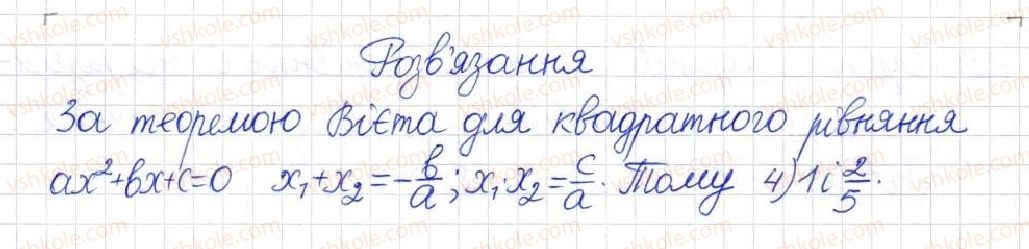 Розв'язання
За теоремою Вієта для квадратного рівняння
ax²+bx+c=0 x₁+x₂=-b/a; x₁·x₂=c/a. Тому 4) 1 і 2/5.